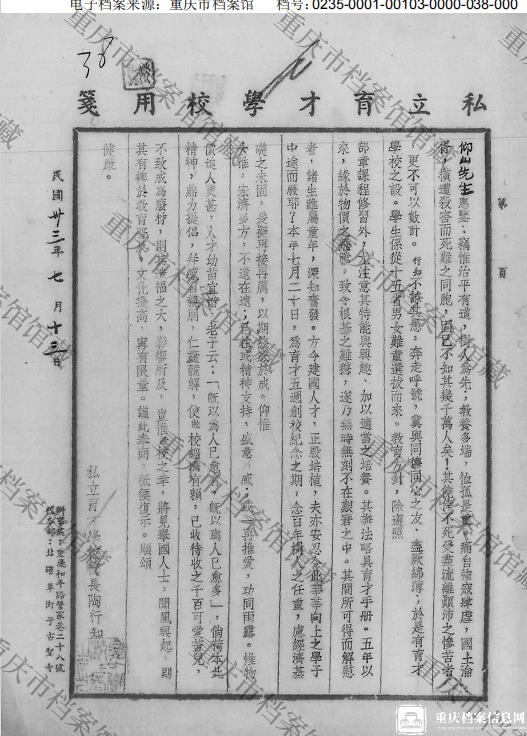 电子档案来源：重庆市档案馆 档号：0235-0001-00103-0000-038-000
38
私立育才學校用箋
仰山先生惠鑒：竊惟治平有道，樹人為先；教養多端，恤孤是重。痛自強寇肆虐，國土淪
橫遭殺害而死難之同胞，固已不知其幾千萬人矣！其僥倖不死受盡流離顛沛之慘苦者
更不可以數計。行知不諒其愚，奔走呼號，冀與同德同心之友，盡厥綿薄，於是有育才
學校之設。學生係從十五省男女難童選拔而來。教育方針，除遵照
部章課程修習外，注意其特能與興趣，加以適當之培養。其辦法略具育才手册。五年以
來，緣於物價之飛騰，致令根基之難穩，遂乃無時無刻不在艱窘之中。其間所可得而解慰
者，諸生雖屬童年，深知奮發。方今建國人才，正殷培植，夫亦安忍令此莘莘向上之學子
中途而廢耶？本年七月二十日，為育才五週創校紀念之期，念百年樹人之任重，慮經濟基
礎之未固，爰擬再接再厲，以期於成。仰惟
宏濟多方，不遺在遠；已往或精神支持，盛意再推愛，功同雨露。惟物
人才幼苗宜惜，老子云：「既以為人己愈有，既以與人己愈多」，倘荷本此
精神，鼎力提倡，仁襄義解，使校經濟有賴，已收待收之千百可愛苗兒，
不致成為廢材，則造福之大，影響所及，豈惟校之幸，將見舉國人士，聞風興起，則
其有裨於教育，文化提高，寧有限量。謹此奉函，祗候復示。順頌
健康。
私立育才學校校長陶行知
辦事處：重慶和平路管家巷二十八號
校本部：北碚草街子古聖寺
民國卅三年七月十三日
第 頁
重庆市档案馆馆藏
重庆档案信息网